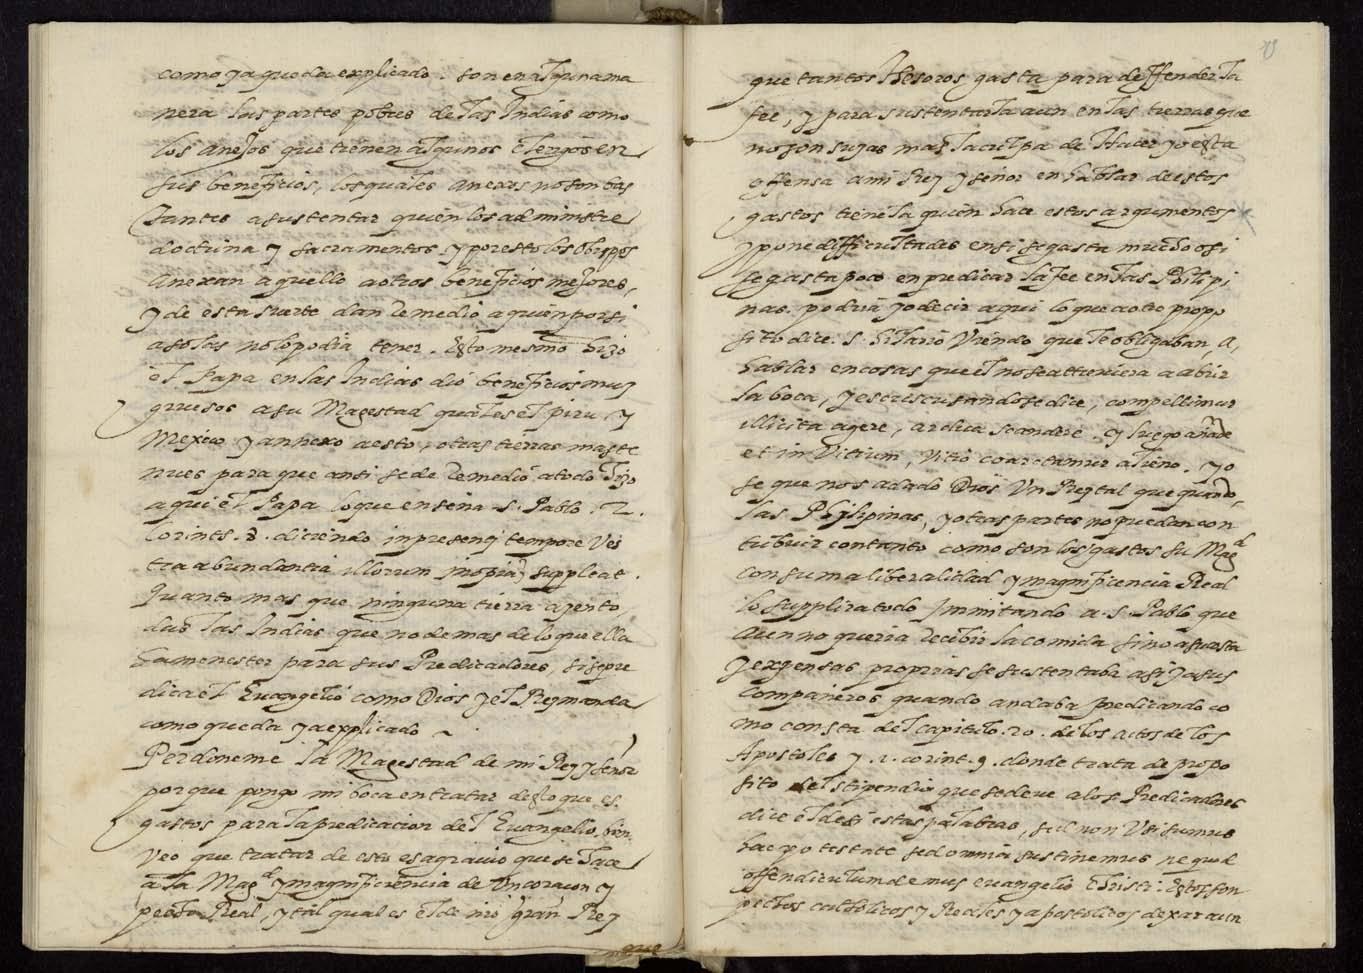 como ya queda explicado. son en alguna ma
nera las partes pobres de las Indias como
los anejos que tienen algunos clerigos en
sus beneficios, los quales anexos no son bas
tantes a sustentar quien los administre
doctrina y sacramentos. y por esto los obispos
anexan aquello a otros beneficios mejores,
y de esta suerte dan Remedio a quien por si
a solas no lo podia tener. Esto mesmo hizo
el Papa en las Indias dio beneficios muy
gruesos a su Magestad quales el piru y
Mexico y annexo a esto, otras tierras mas te
nues para que anti se de Remedio a todo hizo
aqui el Papa lo que enseña .S. Pablo .2.
Corint. 8. diciendo inpresenti tempore Ves
tra abundantia illorum inopiã suppleat.
Quanto mas que ninguna tierra aj en to
das las Indias que no de mas de lo que ella
ha menester para sus Predicadores, si se pre
dica el Evangelio como Dios y el Rey manda
como queda ya explicado
Perdoneme la Magestad de mi Rey y señor
porque pongo mi boca en tratar de lo que es
gastos para la predicacion del Evangelio, bien
veo que tratar de esto es agravio que se hace
a la Magd y magnificencia de un coraçon y
pecho Real, y tal qual es el de mi gran Rey
que
que tantos thesoros gasta para deffender la
fee, y para sustentarla aun en las tierras que
no son suyas mas la culpa de Hacer yo esta
offensa a mi Rey y señor en hablar de estos
gastos tiene la quien hace estos argumentos
y pone difficultades en si se gasta mucho o si
se gasta poco en predicar la fee en las Philipi
nas. podria yo decir aqui lo que a otro propo
sito dice .S. hilario Viendo que le obligaban, a,
hablar en cosas que el no se atteviera a abrir
la boca, y escuscusandose dice, compellimur
illicita agere, ardua scandere. y luego añade
et in Vitium, Vitio coarctamur alieno. yo
se que nos a dado Dios Un Rey tal que quando
las Philipinas, y otras partes no quedan con
tribuir con tanto como son los gastos su Magd
con suma liberalidad y magnificencia Real
lo supplira todo immitando a .S. Pablo que
aun no queria Recibir la comida sino a su costa
y expensas proprias se sustentaba a si y a sus
compañeros quando andaba predicando co
mo consta del capitulo .20. de los actos de los
Apostoles y .1. corint. 9. donde trata de propo
sito del stipendio que se deve a los Predicadores
dice el de si estas palabras, sed non Usi sumus
hac potestate sed omnia sustinemus ne quod
offendiculum demus evangelio christi. Estos son
pechos catholicos y Reales y apostolicos dexar aun